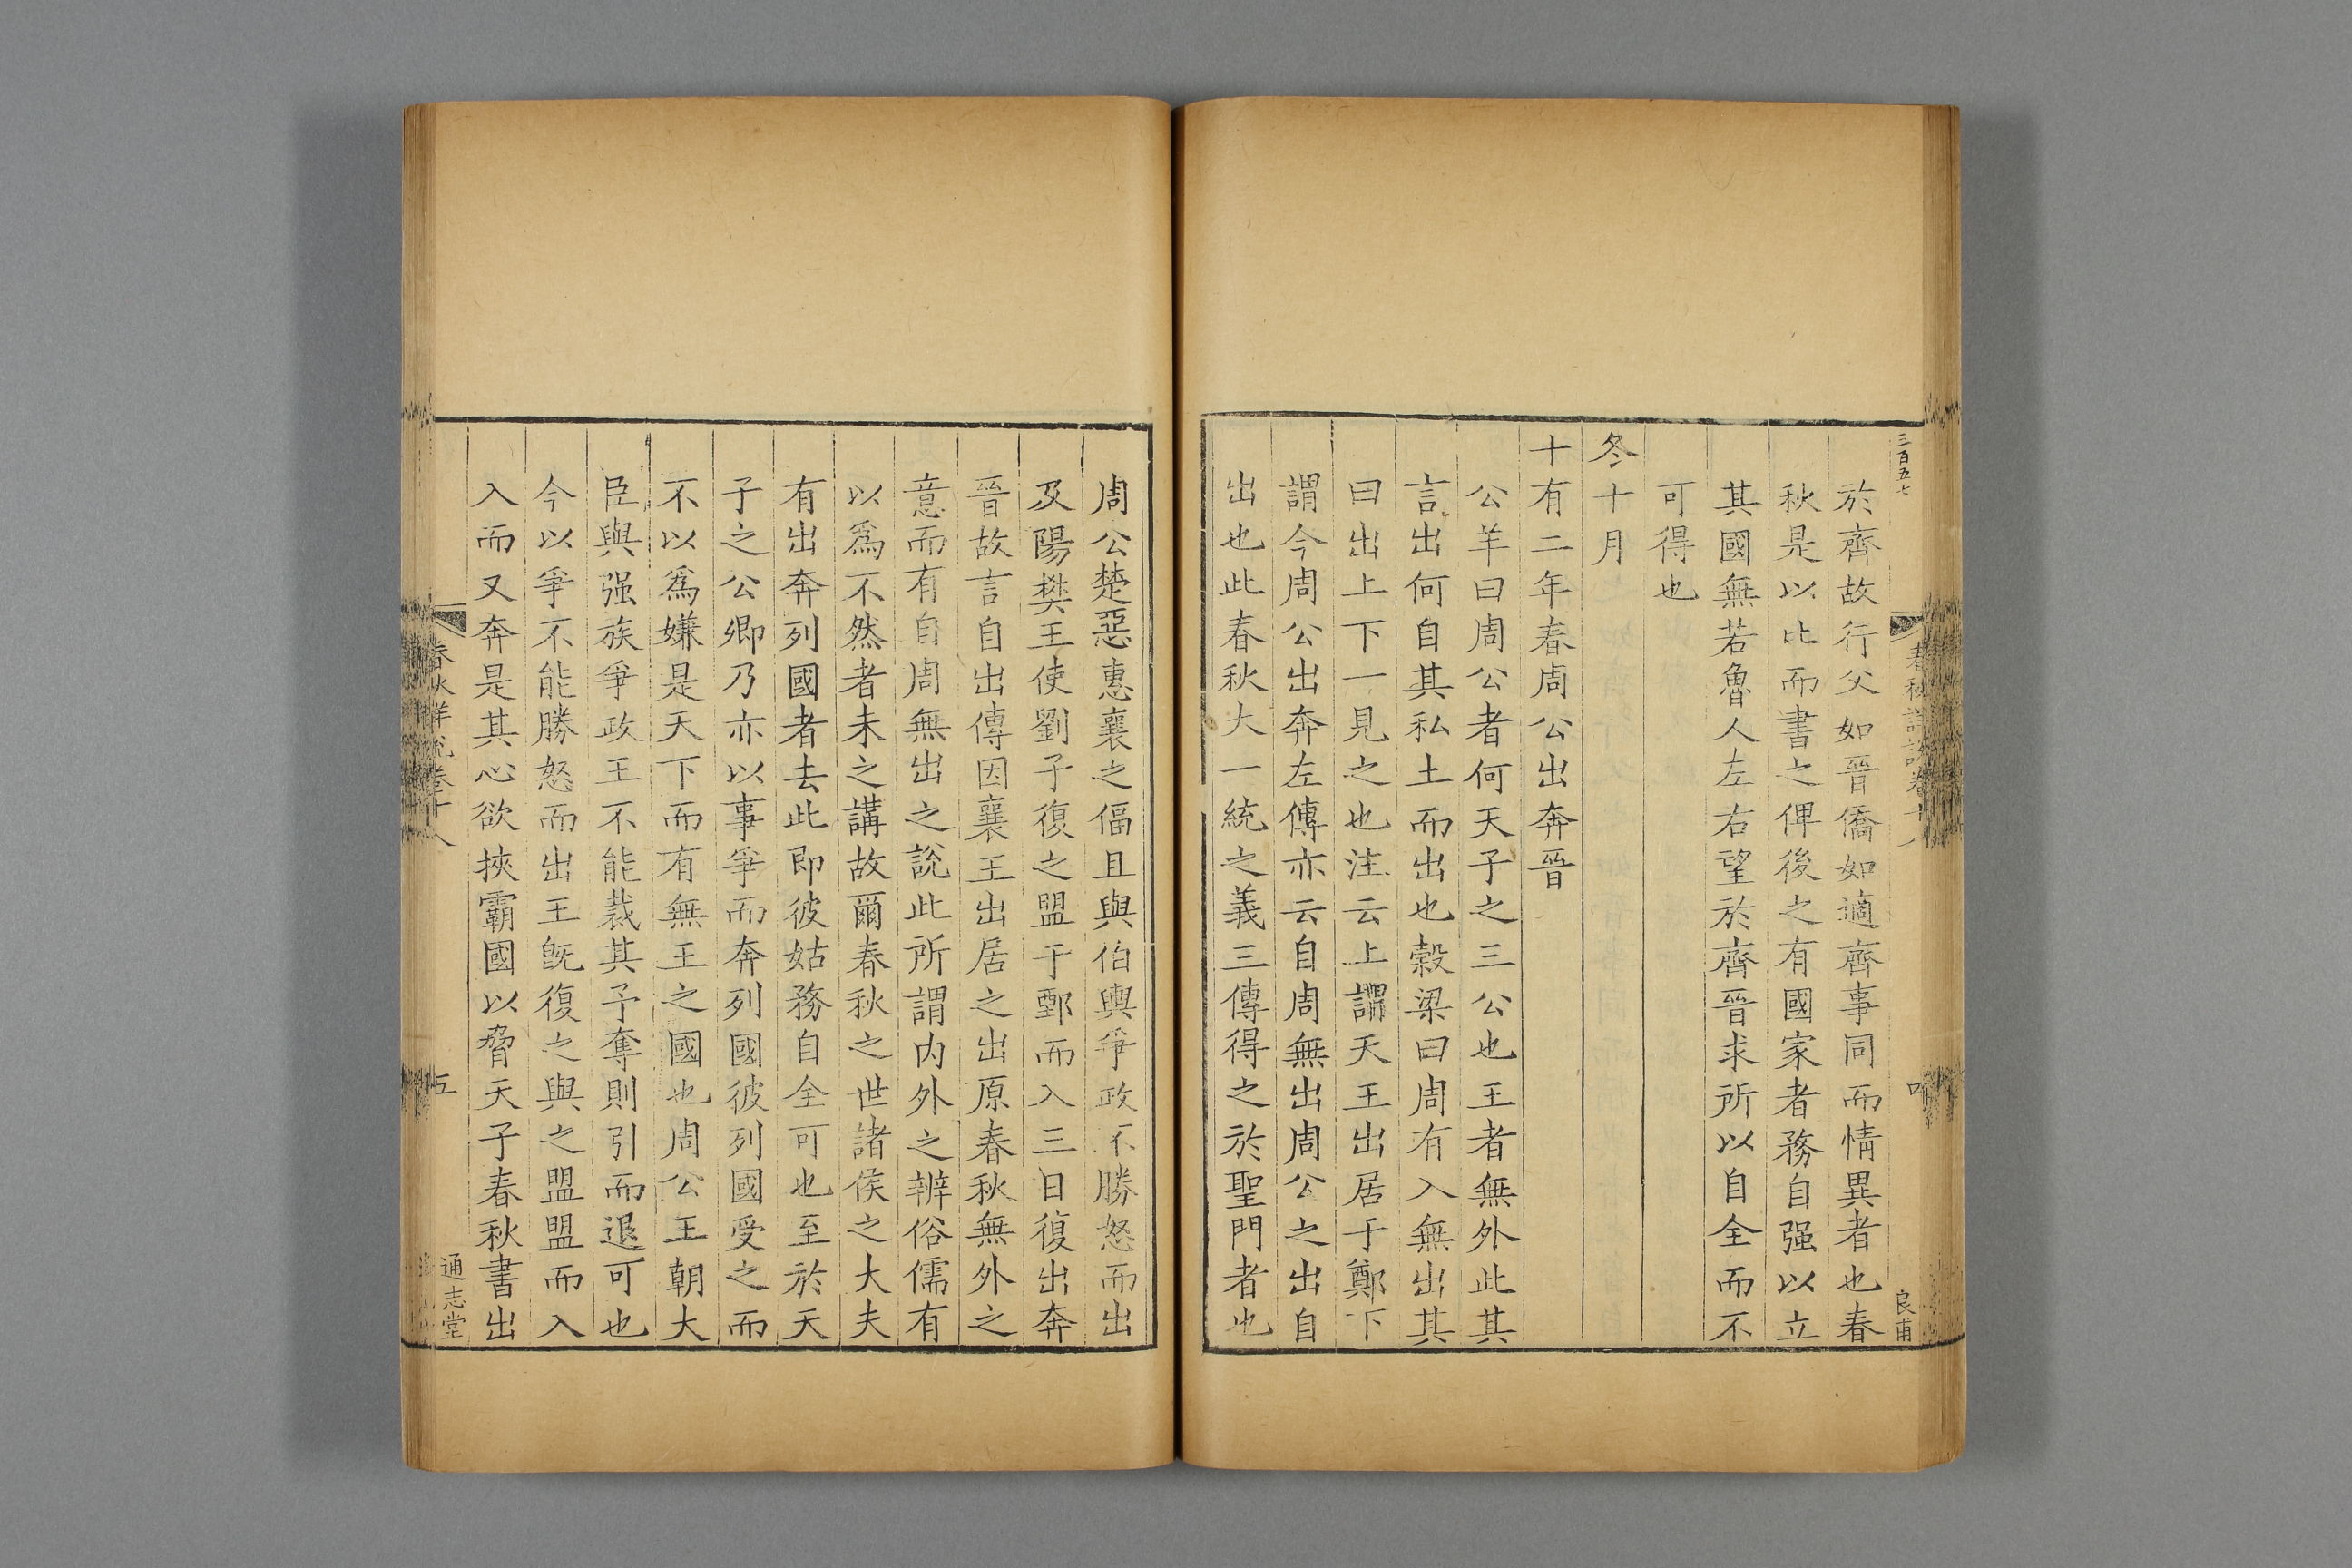 三百五七
於齊故行父如晉僑如適齊事同而情異者也春
秋是以比而書之俾後之有國家者務自强以立
其國無若魯人左右望於齊晉求所以自全而不
可得也
冬十月
十有二年春周公出奔晉
公羊曰周公者何天子之三公也王者無外此其
言出何自其私土而出也穀梁曰周有入無出其
曰出上下一見之也注云上謂天王出居于鄭下
謂今周公出奔左傳亦云自周無出周公之出自
出也此春秋大一統之義三傳得之於聖門者也
春秋詳說卷十八
良甫
周公楚惡惠襄之偪且與伯輿爭政不勝怒而出
及陽樊王使劉子復之盟于鄄而入三日復出奔
晉故言自出傳因襄王出居之出原春秋無外之
意而有自周無出之說此所謂内外之辨俗儒有
以爲不然者未之講故爾春秋之世諸侯之大夫
有出奔列國者去此即彼姑務自全可也至於天
子之公卿乃亦以事爭而奔列國彼列國受之而
不以爲嫌是天下而有無王之國也周公王朝大
臣與强族爭政王不能裁其予奪則引而退可也
今以爭不能勝怒而出王旣復之與之盟盟而入
入而又奔是其心欲挾霸國以脅天子春秋書出
春秋詳說卷十八
五
通志堂